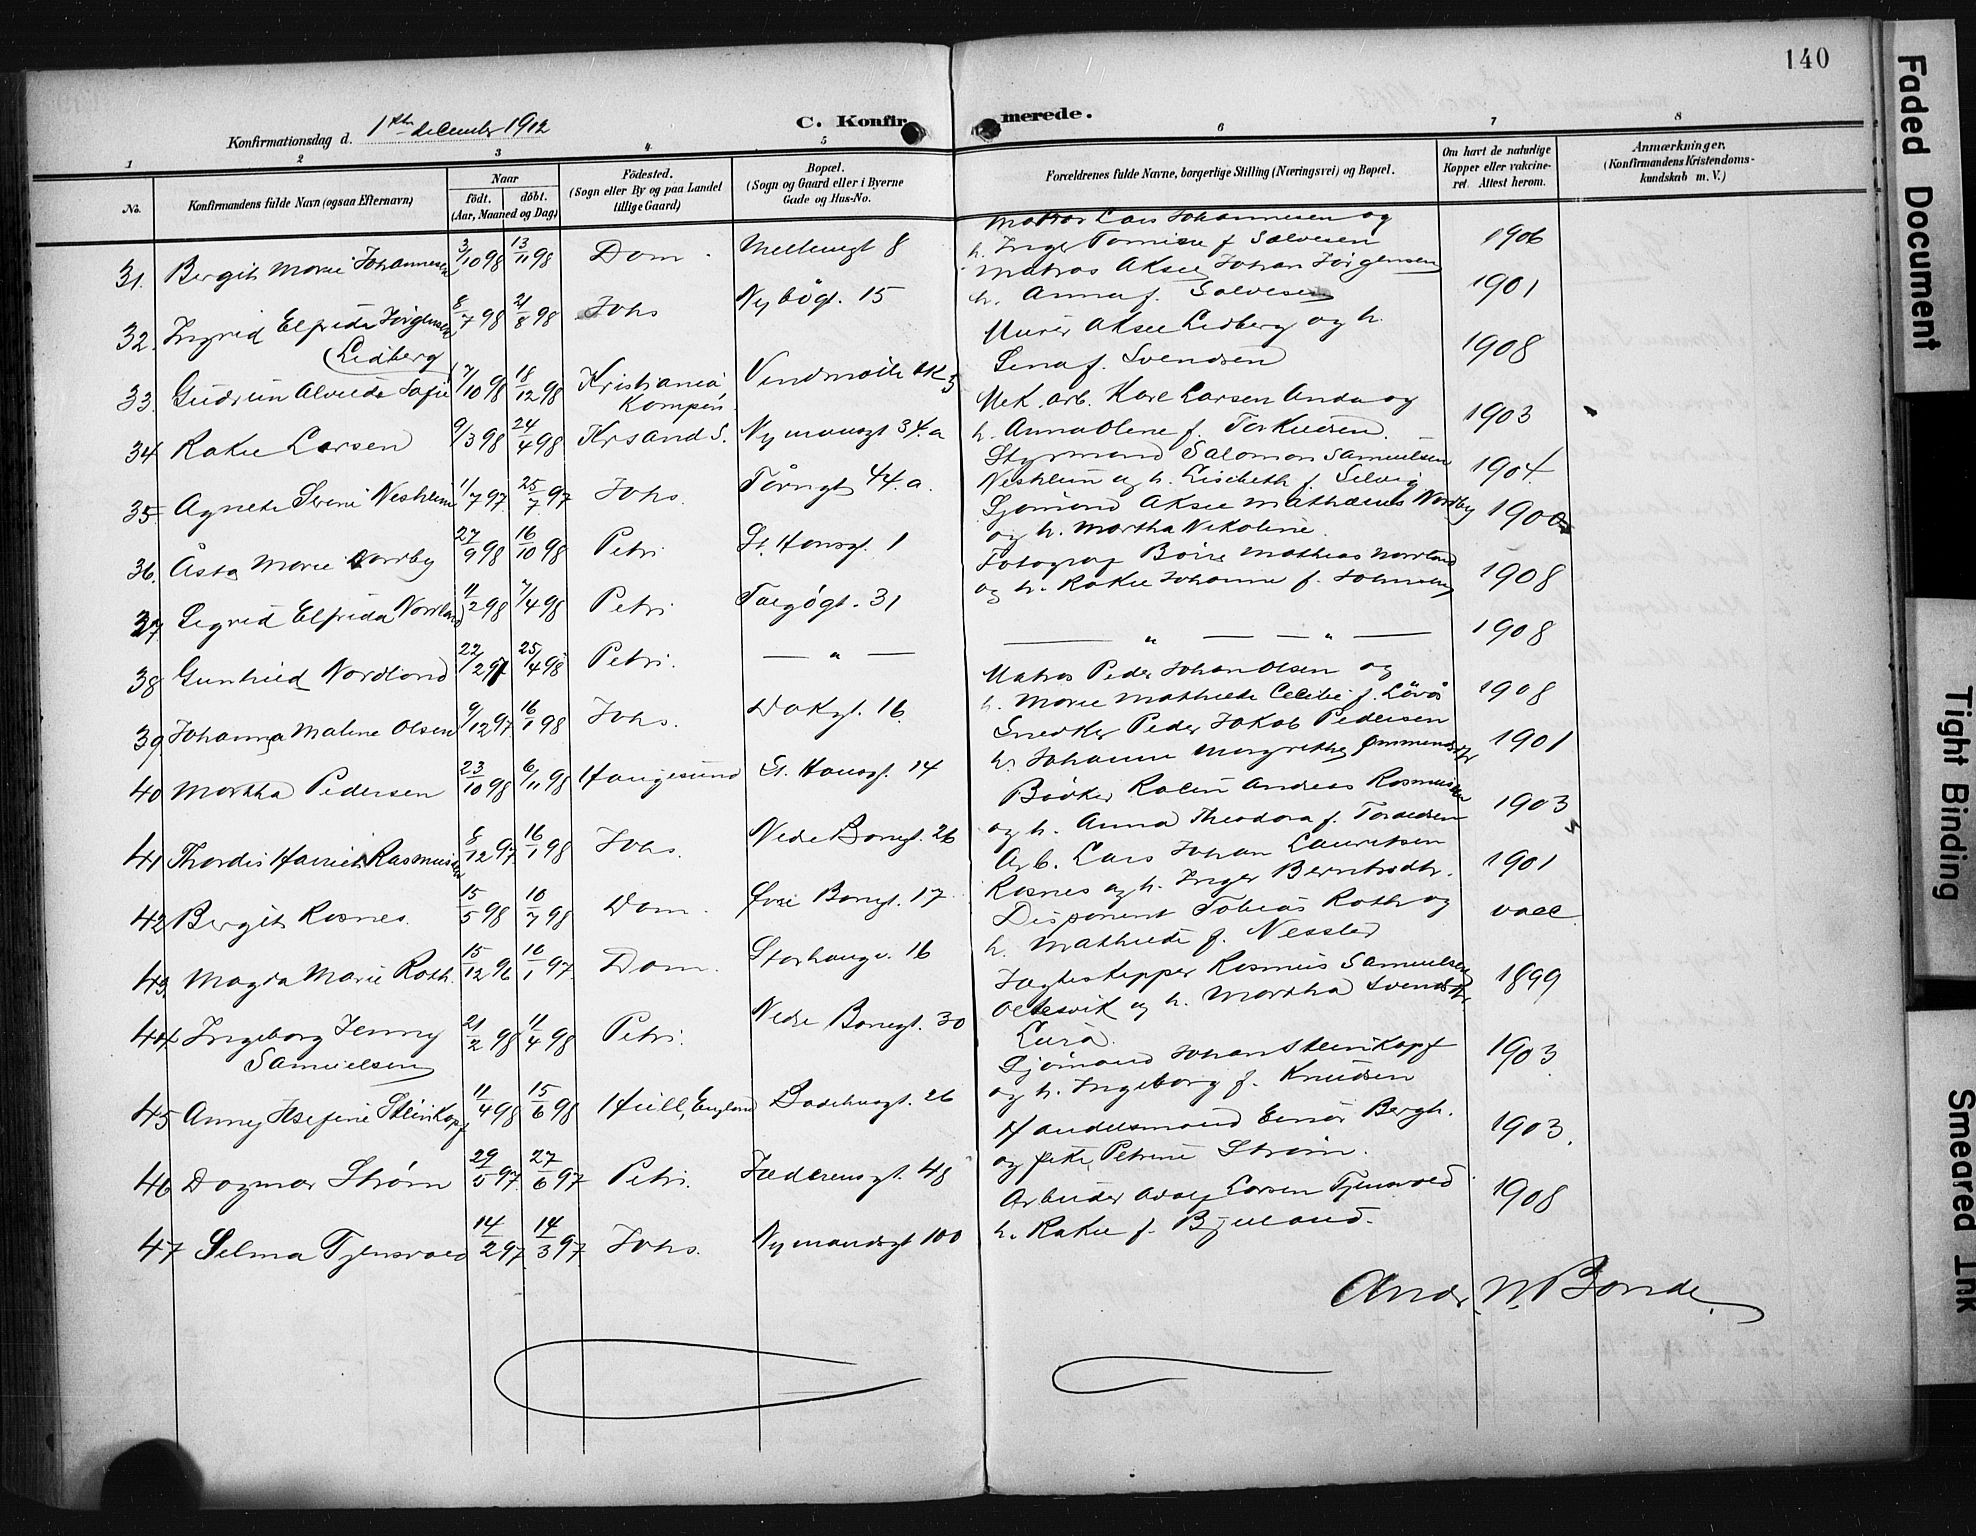 140
Konfirmationsdag d. 1ste december 1912
C. Konfirmerede.
1 2 3 4 5 6 7 8
No.
Konfirmandens fulde Navn (ogsaa Efternavn)
Naar
født. døbt.
(Aar, Maaned og Dag)
Fødested.
(Sogn eller By og paa Landet
tillige Gaard)
Bopæl.
(Sogn og Gaard eller i Byerne
Gade og Hus-No.
Forældrenes fulde Navne, borgerlige Stilling (Næringsvei) og Bopæl.
Om havt de naturlige
Kopper eller vakcine-
ret. Attest herom.
Anmærkninger.
(Konfirmandens Kristendoms-
kundskab m. V.)
31. Bergith Marie Johannesen 3/10 98 13/11 98 Dom. Mellemgt 8 Matros Lars Johannesen og
h. Inger Tomine f. Salvesen 1906
32. Ingrid Elfrida Jørgensen 8/7 98 21/8 98 Johs Nybøgt. 15 Matros Aksel Johan Jørgensen
h. Anna f. Salvesen 1901
(Lidberg
33. Gudrun Alvilde Sofie 7/10 98 18/12 98 Kristiania Kampen. Murer Aksel Lidberg og h.
Lina f. Svendsen 1908
34 Rakel Larsen 9/3 98 24/4 98 Krsand S. Nymansgt 34.a Mek. arb. Karl Larsen Anda og
h. Anna Oline f. Torkildsen. 1903
35. Agnete Serine Neshleim 11/7 97 25/7 97 Johs. 44.a. Styrmand Salomon Samuelsen
Neshleim og h. Lisebeth f. Selvig 1904.
36. Asta Marie Nordby 27/9 98 16/10 98 Petri St. Hansgt. 1 Sjømand Aksel Mathæus Nordby
og h. Martha Nikoline. 1900
37. Sigrid Elfrida Nordland 11/2 98 7/4 98 Petri Fotograf Mathias Nordland
og h. Rakel Johanne f. Johnsen 1908
38 Gunhild Nordland 22/2 97 25/4 98 Petri. — " — — " — — " — 1908
39. Johanna Maline Olsen 9/12 97 16/1 98 Johs. Dokgt. 16. Matros Peder Johan Olsen og
h. Marie Mathilde Cecilie f. Løvås 1908
40 Martha Pedersen 23/10 98 6/11 98 Haugesund St. Hansgt. 14 Snedker Peder Jakob Pedersen
h. Johanne Margrethe Ommundsdtr 1901
41 Thordis Rasmussen 8/12 97 16/1 98 Johs. Nedre Banegt. 26 Bødker Andreas Rasmussen
og h. Anna Theodora f. 1903
42 Bergith Rosnes. 15/5 98 10/7 98 Dom. Øvre Banegt. 17 Arb. Lars Johan Lauritsen
Rosnes og h. Inger Berntsdtr. 1901
43. Magda Marie Roth. 15/12 96 10/1 97. Dom. Storhaugv. 16 Disponent Tobias Roth og
h. Mathilde f. Nessler vacc
44. Ingeborg Jenny
Samuelsen 21/2 98 11/4 98 Petri. Nedre Banegt. 30 Jagteskipper Rasmus Samuelsen
Oltesvik og h. Martha Svendsdtr.
Lura. 1899
45 Anny Josefine Steinkopf 11/4 98 15/6 98 Hull, England Badehusgt. 26 Sjømand Johan Steinkopf
og h. Ingeborg f. Knudsen 1903.
46 Dagmar Strøm 29/5 97 27/6 97 Petri. Jædderensgt. 48 Handelsmand Einar Bergh.
og pike, Petrine Strøm. 1903.
47 Selma Tjensvold 14/2 97 14/3 97 Johs. Nymandsgt 100 Arbeider Larsen Tjensvold
h. Rakel f. Bjeland. 1908
Andr. N. Bonde.
Faded Document
Tight Binding
Smeared Ink